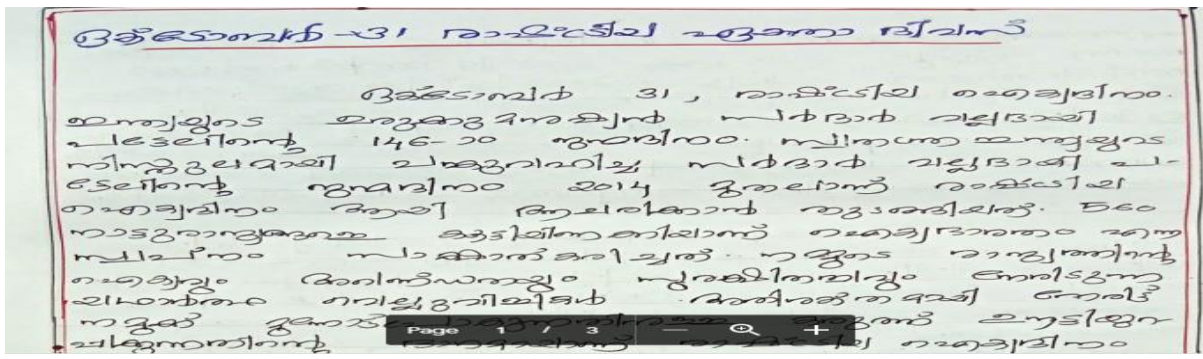 ഒക്ടോബർ -31 രാഷ്ട്രീയ ഏകതാ ദിവസ്
ഒക്ടോബർ 31, രാഷ്ട്രീയ ഐക്യദിനം.
ഇന്ത്യയുടെ ഉരുക്കുമനുഷ്യൻ സർദാർ വല്ലഭായി
പട്ടേലിന്റെ 146-ാം ജന്മദിനം. സ്വതന്ത്ര ഇന്ത്യയുടെ
പങ്കുവഹിച്ച സർദാർ വല്ലഭായി പ-
ട്ടേലിന്റെ ജന്മദിനം 2014 മുതലാണ് രാഷ്ട്രീയ
ഐക്യദിനം ആയി ആചരിക്കാൻ തുടങ്ങിയത്. 560
നാട്ടുരാജ്യങ്ങളെ കൂട്ടിയിണക്കിയാണ് ഐക്യഭാരതം എന്ന
സ്വപ്നം സാക്ഷാത്കരിച്ചത്. നമ്മുടെ രാജ്യത്തിന്റെ
ഐക്യവും അഖണ്ഡതയും സുരക്ഷിതത്വവും നേരിടുന്ന
യഥാർത്ഥ വെല്ലുവിളികൾ
നമുക്ക് കരുത്ത്
ഐക്യദിനം
Page 1 / 3 — +